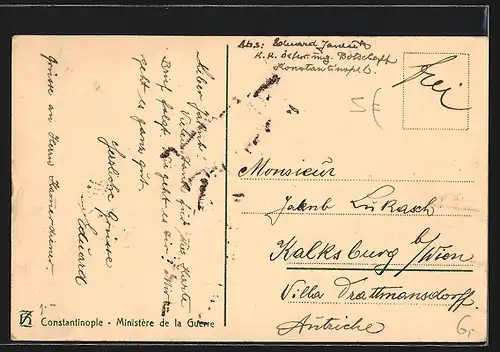 Abs: Eduard
K. K. österr. ung. Botschaft
Konstantinopel.
frei
Monsieur
Jakob Lukasch
Kalksburg b/Wien
Villa Trattmansdorff
Autriche
6,-
Lieber
Vielen Dank für Ihre Karte
Brief folgt. Wie geht es
geht es ganz gut.
Herzliche Grüsse
Eduard
Grüsse an Herrn Kammerdiener
Constantinople - Ministère de la Guerre